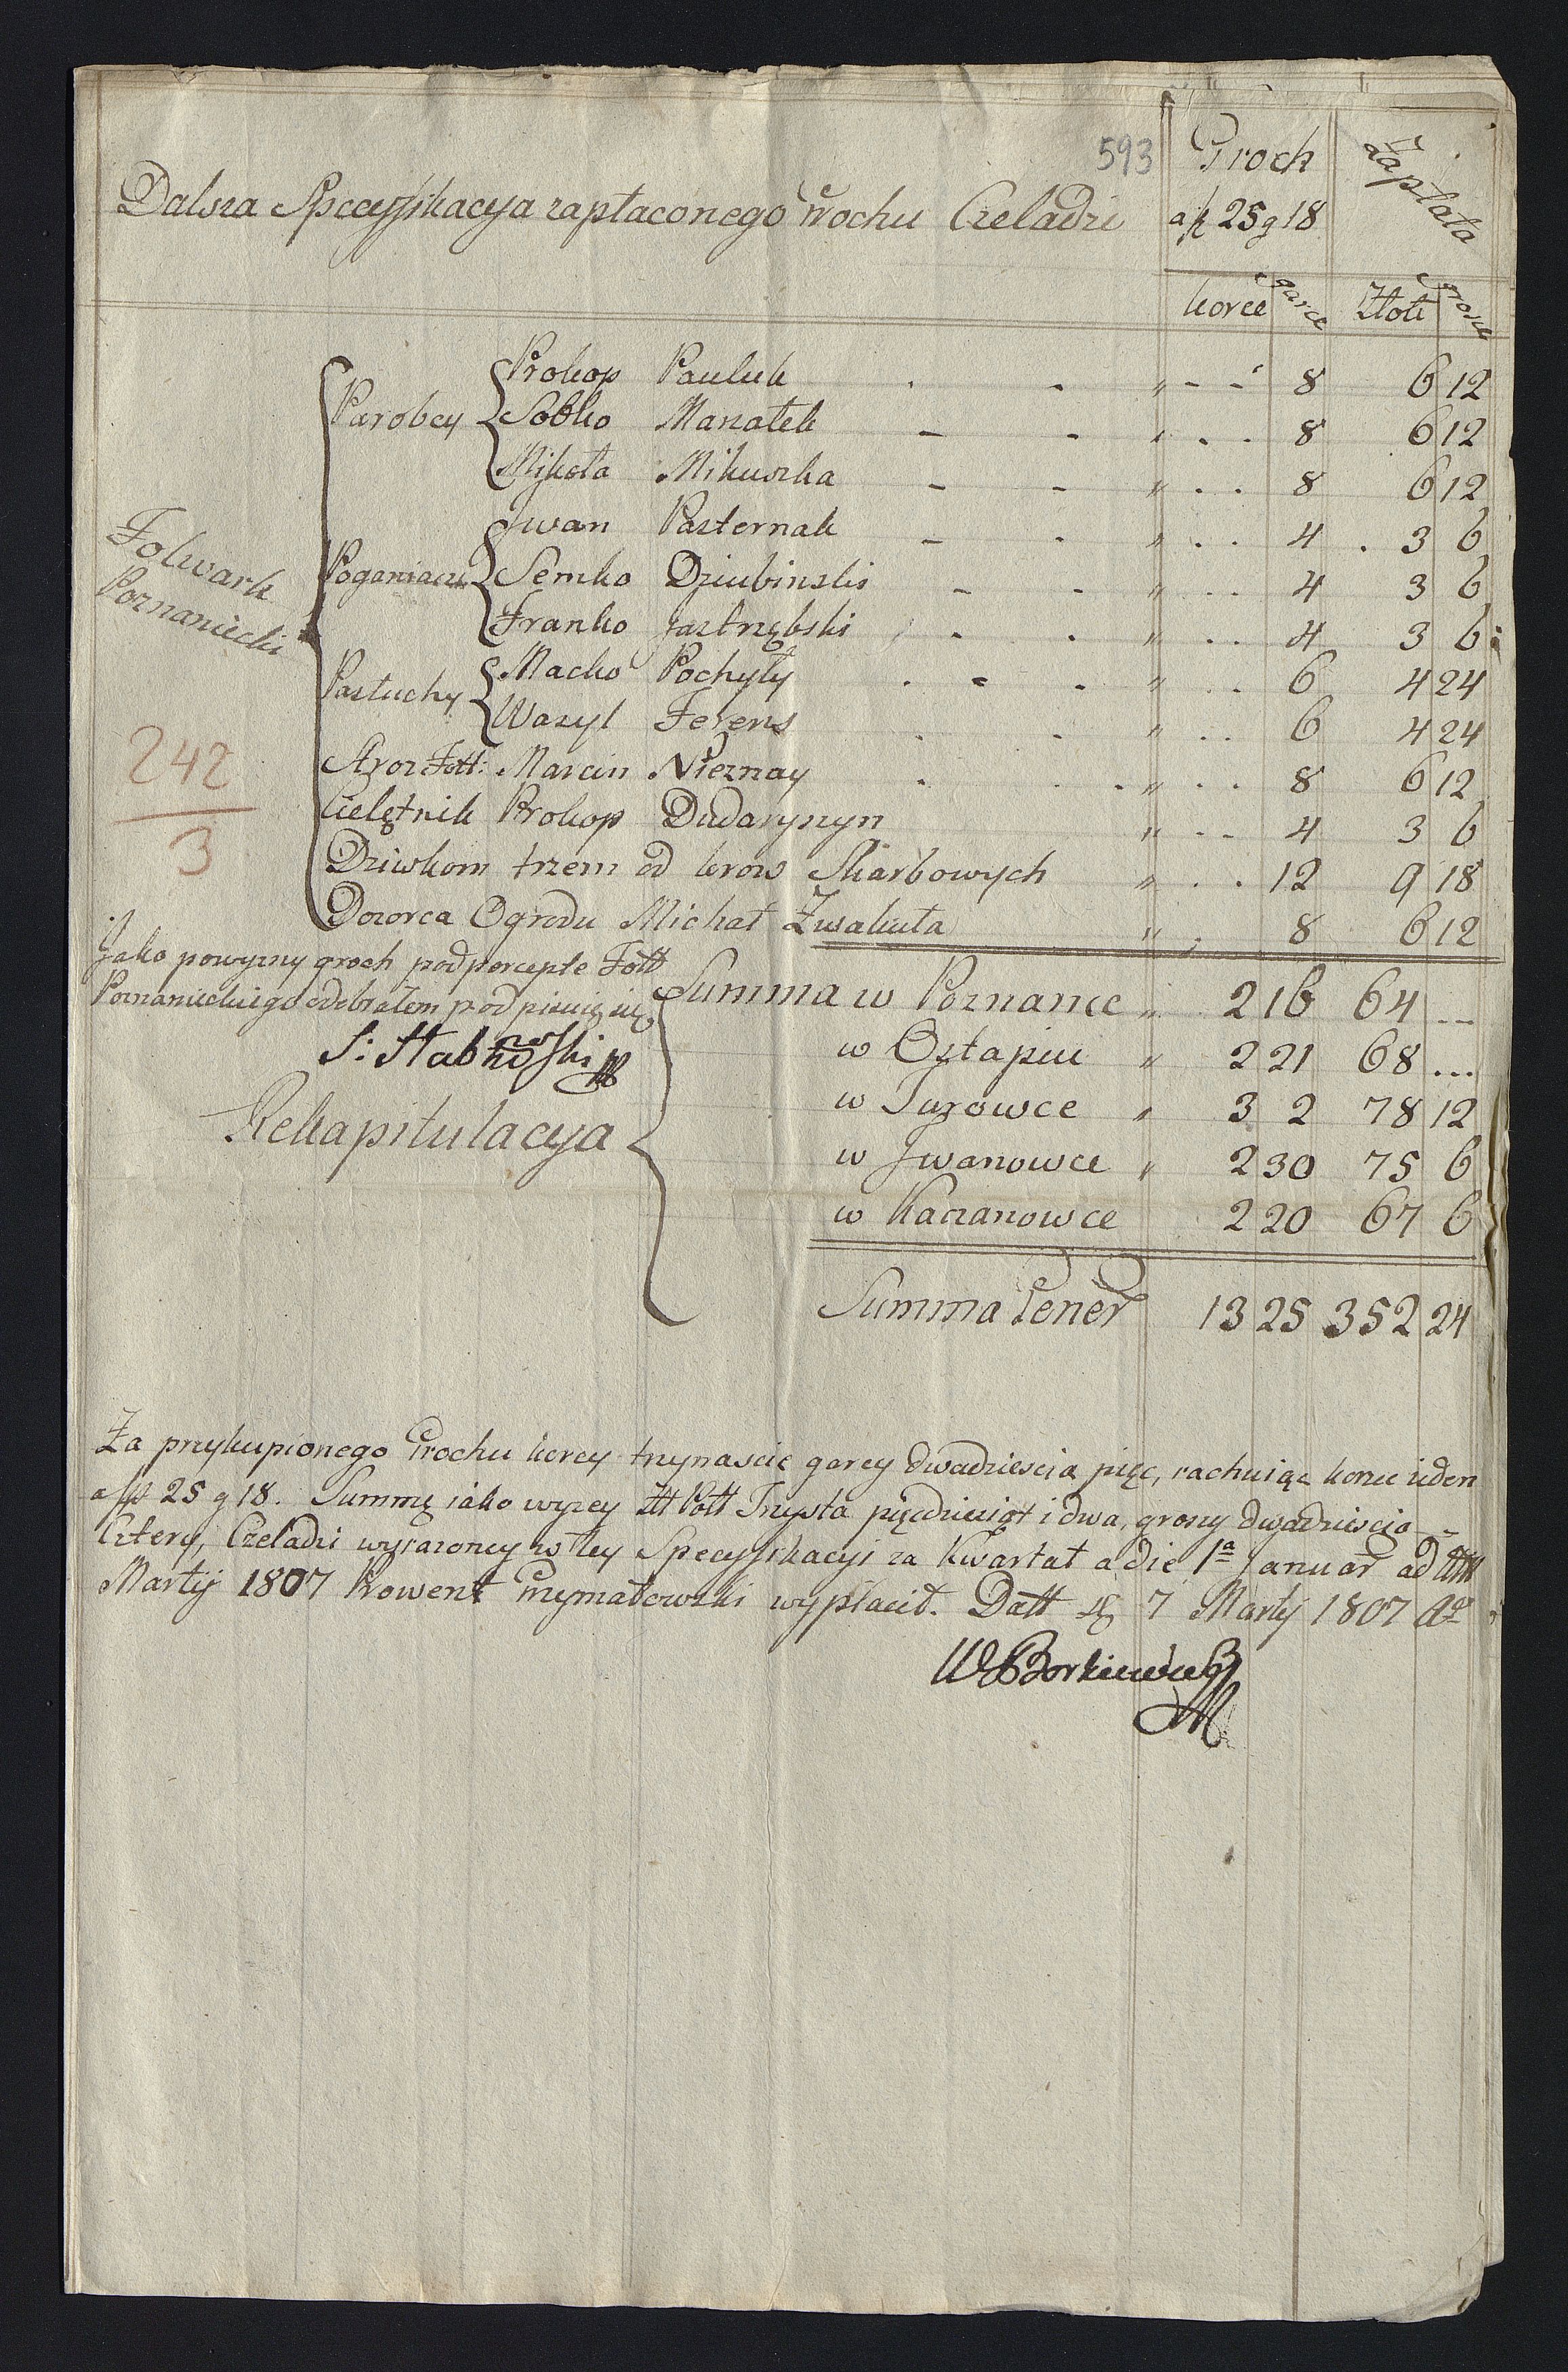 593
Dalsza Specyfikacya zapłaconego Grochu Czeladzi
Groch
a fl 25 g 18
Zapłata
korce garce Złote grosze
Folwark
Poznaniecki
Parobcy Prokop Pauluk " 8 6 12
Sobko Manatek " 8 6 12
Mikoła Mikuszka " 8 6 12
Poganiacze Jwan Pasternak " 4 3 6
Semko Dziubinski " 4 3 6
Franko Jastrzębski " 4 3 6
Pastuchy Macko Pochyły " 6 4 24
Wasyl Ferens " 6 4 24
Stroz Foll: Marcin Nieznay " 8 6 12
Cielętnik Prokop Dudaryszyn " 4 3 6
Dziwkom trzem od krow Skarbowych " 12 9 18
Dozorca Ogrodu Michał Zwakuta " 8 6 12
242
3
Jako powyzszy groch pod percepte Foll
Poznanieckiego odebrałem podpisuię się
Summa w Poznance " 2 16 64 ...
w Ostapiu " 2 21 68 ...
w Turowce " 3 2 78 12
w Jwanowce " 2 30 75 6
w Kaczanowce 2 20 67 6
Rekapitulacya
Summa Gener 13 25 352 24
Za przykupionego Grochu korcy trzynascie garcy dwadziescia pięc, rachuiąc korzec ieden
a fl 25 g 18. Summę iako wyzey Złł Poll Trzysta pięcdziesiąt i dwa, groszy dwadziescia
Cztery, Czeladzi wyrazoney w tey Specyfikacyi za Kwartał a die 1a Januar ad Ult
Martij 1807 Prowent Grzymałowski wypłacił. Datt d 7 Martij 1807 Ao
W Borkiewicz